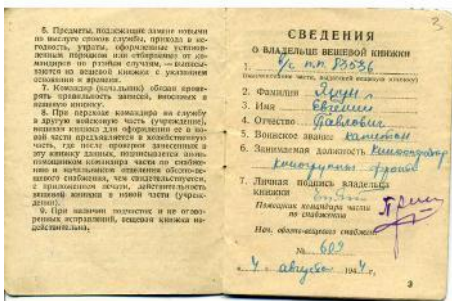 5. Предметы, подлежащие замене новыми
по выслуге сроков службы, прихода в не-
годность, утраты, оформленные установ-
ленным порядком или отбираемые от ко-
мандиров по разным случаям, — выписы-
ваются из вещевой книжки с указанием
основания и времени.
7. Командир (начальник) обязан прове-
рять правильность записей, вносимых в
вещевую книжку.
8. При переводе командира на службу
в другую войсковую часть (учреждение),
вещевая книжка для оформления ее в но-
вой части предъявляется в хозяйственную
часть, где после проверки занесенных в
эту книжку данных, подписывается
помощником командира части по снабже-
нию и начальником отделения обозно-ве-
щевого снабжения, чем свидетельствуется,
с приложением печати, действительность
вещевой книжки в новой части (учреж-
дении).
9. При наличии подчисток и не огово-
ренных исправлений, вещевая книжка не-
действительна.
3
СВЕДЕНИЯ
О ВЛАДЕЛЬЦЕ ВЕЩЕВОЙ КНИЖКИ
1. п.п. 83536
(наименование части, выдавшей вещевую книжку)
2. Фамилия Яцун
3. Имя Евгений
4. Отчество Павлович
5. Воинское звание капитан
6. Занимаемая должность Кинооператор
киногруппы фронта
7. Личная подпись владельца
книжки
Помощник командира части
по снабжению
Нач. обозно-вещевого снабжен.
№ 609
„4" августа 1944 г.
3